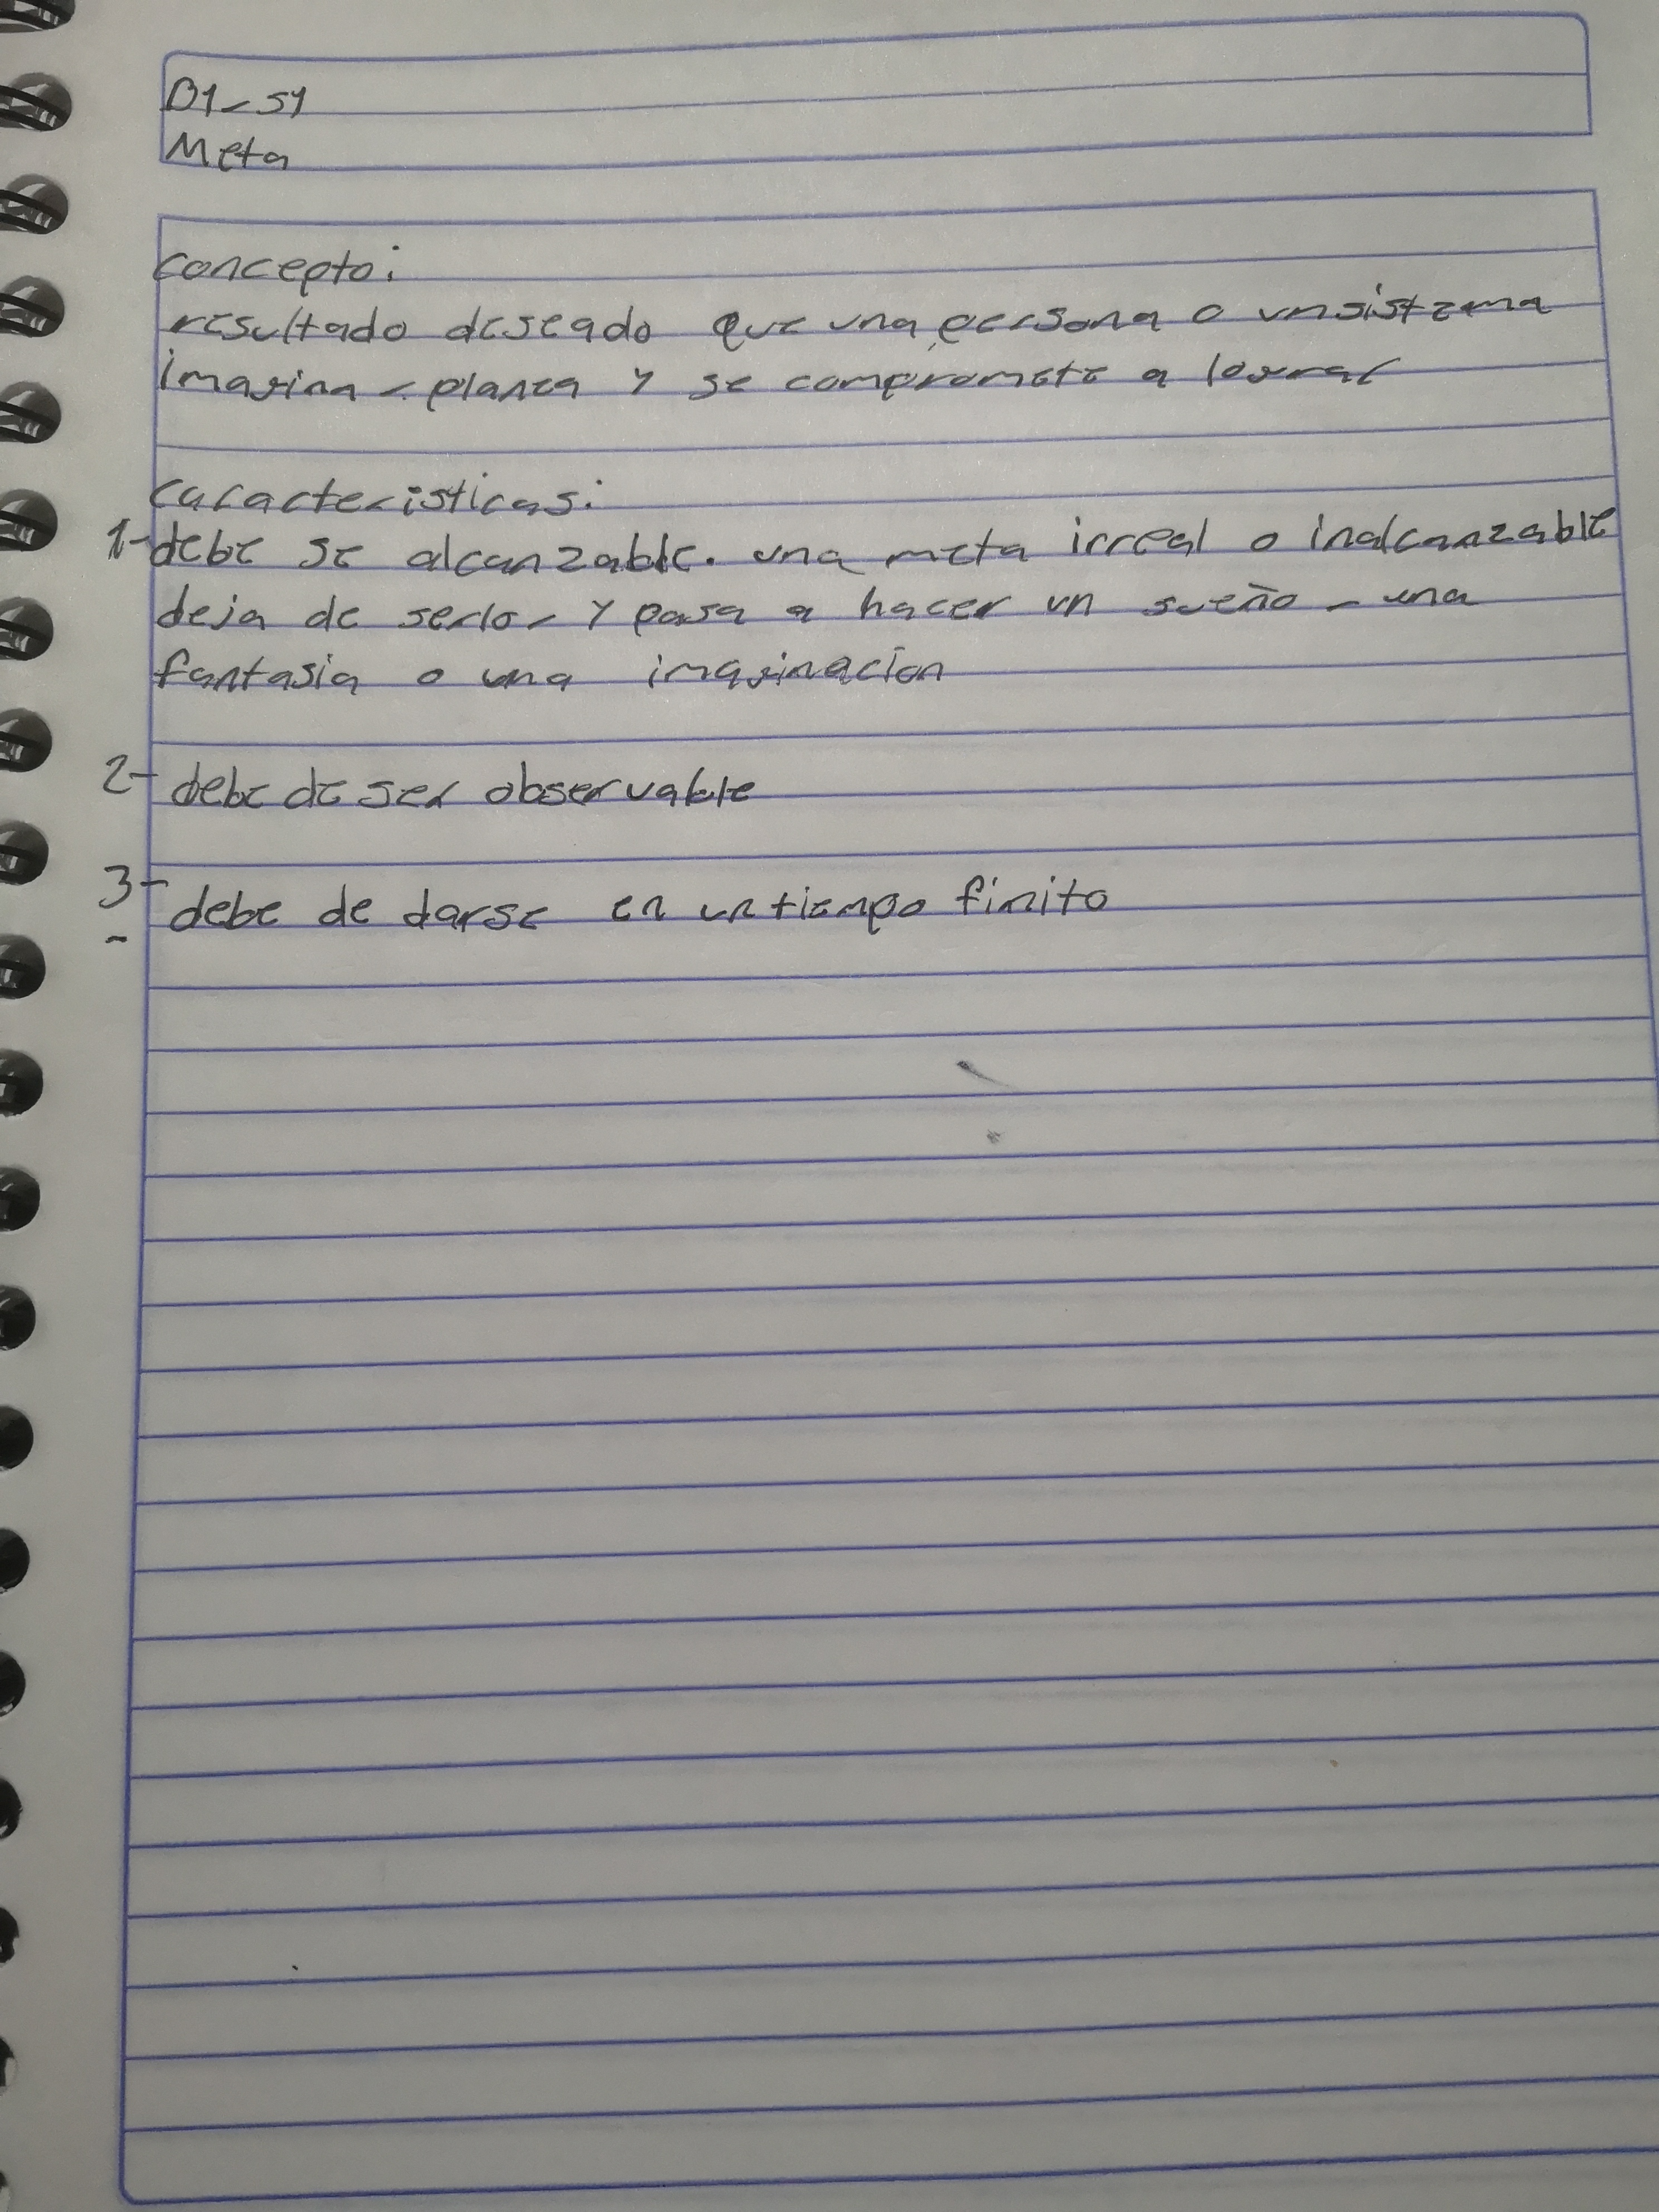 D1-S1
Meta
concepto:
resultado deseado que una persona o un sistema
imagina - planea y se compromete a lograr
caracteristicas:
1- debe se alcanzable. una meta irreal o inalcanzable
deja de serlo - y pasa a hacer un sueño - una
fantasia o una imaginacion
2- debe de ser observable
3- debe de darse en un tiempo finito
-